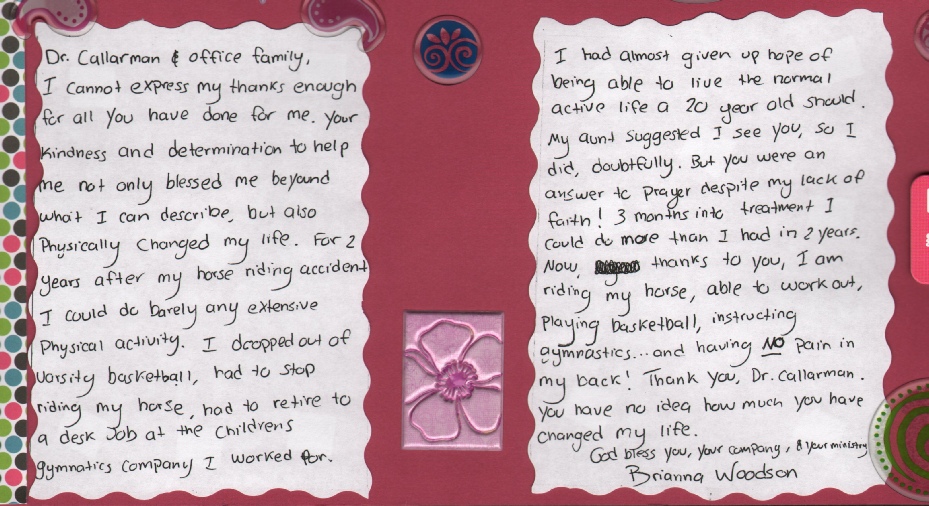 Dr. Callarman & office family,
I cannot express my thanks enough
for all you have done for me. Your
kindness and determination to help
me not only blessed me beyond
what I can describe, but also
Physically changed my life. For 2
years after my horse riding accident
I could do barely any extensive
Physical activity. I dropped out of
varsity basketball, had to stop
riding my horse, had to retire to
a desk job at the childrens
gymnatics company I worked for.
I had almost given up hope of
being able to live the normal
active life a 20 year old should.
My aunt suggested I see you, so I
did, doubtfully. But you were an
answer to Prayer despite my lack of
faith! 3 months into treatment I
could do more than I had in 2 years.
Now, thanks to you, I am
riding my horse, able to work out,
Playing basketball, instructing
gymnastics...and having NO pain in
my back! Thank you, Dr. Callarman.
You have no idea how much you have
changed my life.
God bless you, your company, & your ministry
Brianna Woodson